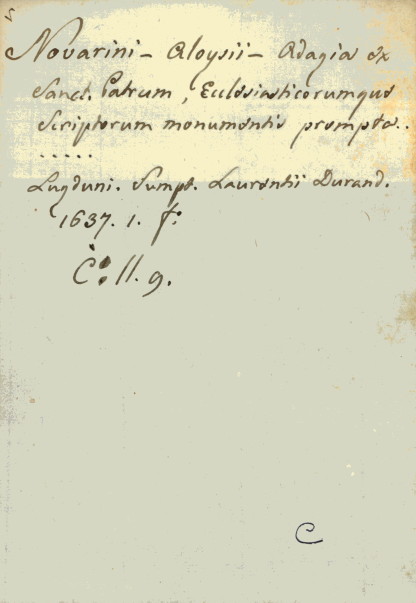 Novarini - Aloysii - Adagia ex
Sanct. Patrum, Ecclesiasticorumque
Scriptorum monumentis prompta..
.....
Lugduni. Sumpt. Laurentii Durand.
1637. 1. f:
C: 11. 9.
C